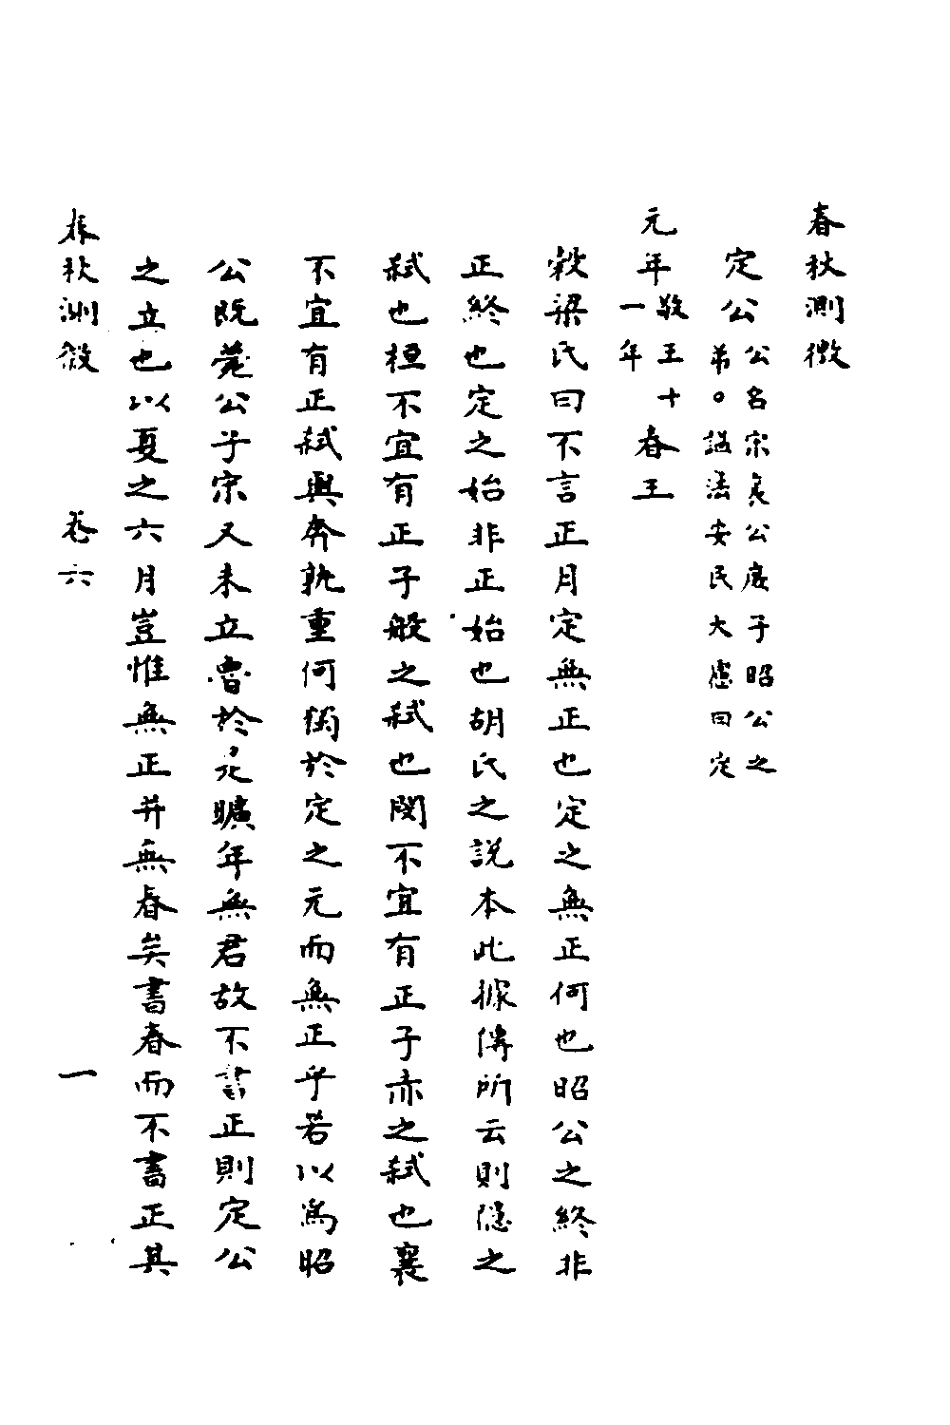 春秋測微
定公公名宋襄公庶子昭公之弟。諡法安民大慮曰定
元年敬王十一年春王
穀梁氏曰不言正月定無正也定之無正何也昭公之終非
正終也定之始非正始也胡氏之說本此據傳所云則隱之
弒也桓不宜有正子般之弒也閔不宜有正子赤之弒也襄
不宜有正弒與奔孰重何獨於定之元而無正乎若以為昭
公既薨公子宋又未立魯於是曠年無君故不書正則定公
之立也以夏之六月豈惟無正并無春矣書春而不書正其
春秋測微 卷六 一